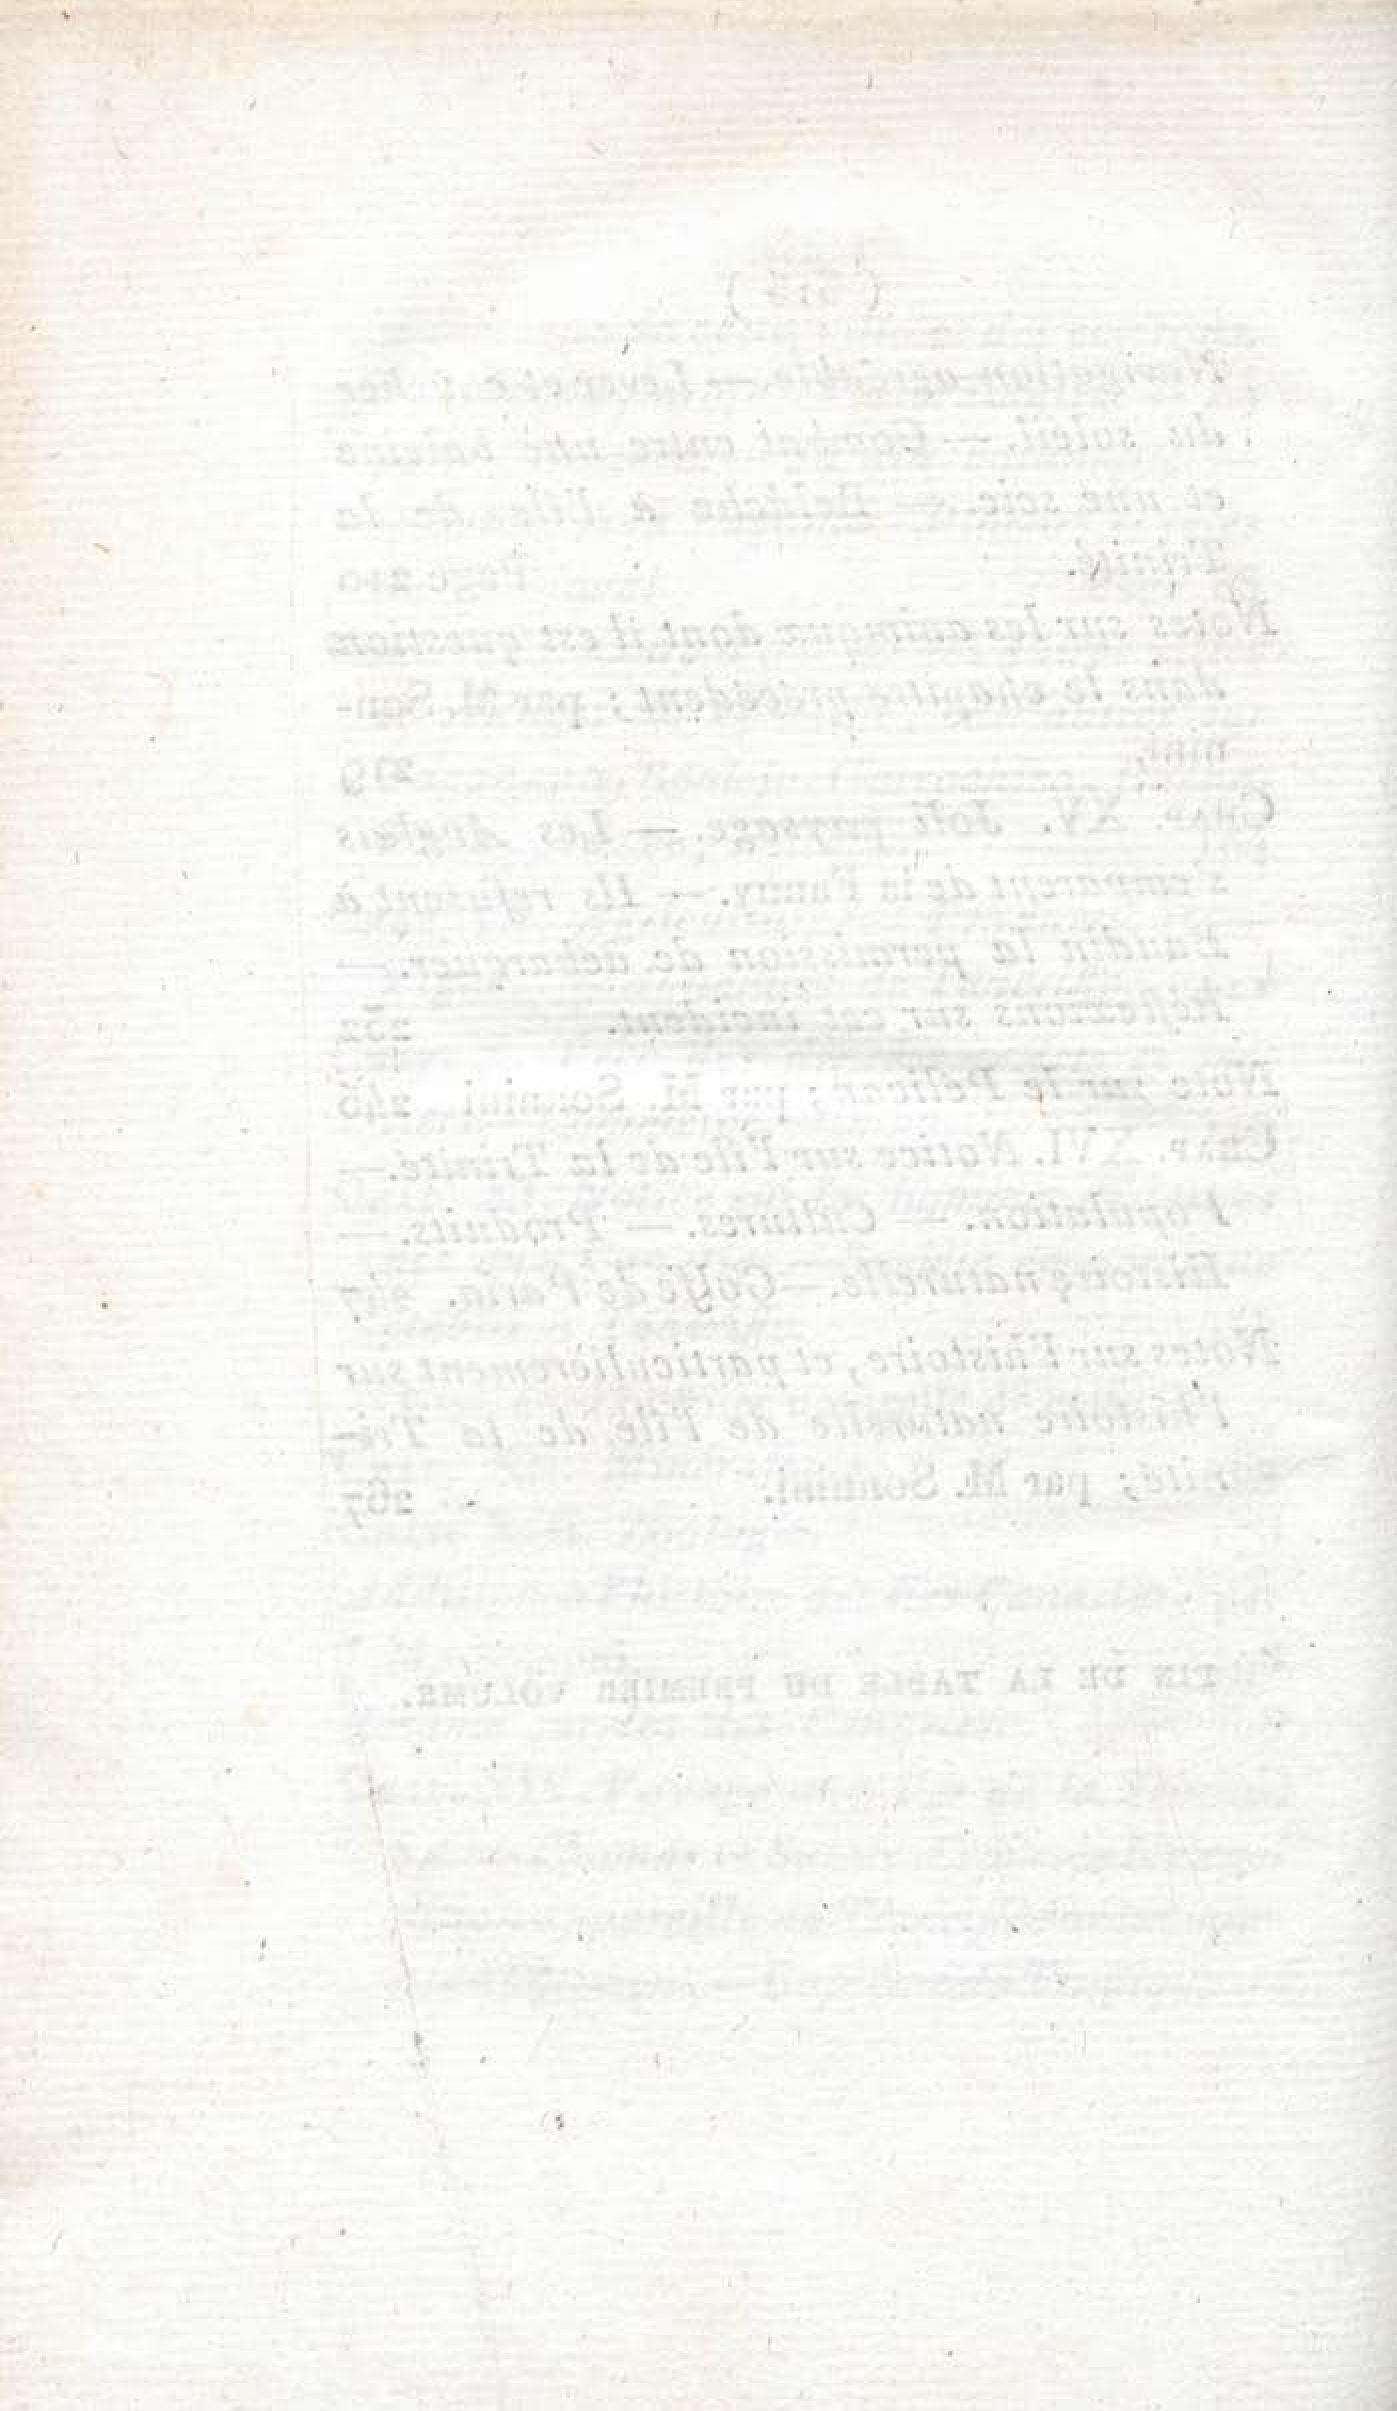 ( 312 )
Navigation agréable. — Lever et coucher
du soleil. — Combat entre une baleine
et une scie. — Relâche à l'île de la
Trinité. Page 210
Notes sur les animaux dont il est question
dans le chapitre précédent; par M. Son-
nini. 219
CHAP. XV. Joli paysage. — Les Anglais
s'emparent de la Fanny. — Ils refusent à
Baudin la permission de débarquer. —
Réflexions sur cet incident. 232
Note sur le Pélican; par M. Sonnini. 246
CHAP. XVI. Notice sur l'île de la Trinité. —
Population. — Cultures. — Produits. —
Histoire naturelle. — Golfe de Paria. 247
Notes sur l'histoire, et particulièrement sur
l'histoire naturelle de l'île de la Tri-
nité; par M. Sonnini. 267
FIN DE LA TABLE DU PREMIER VOLUME.